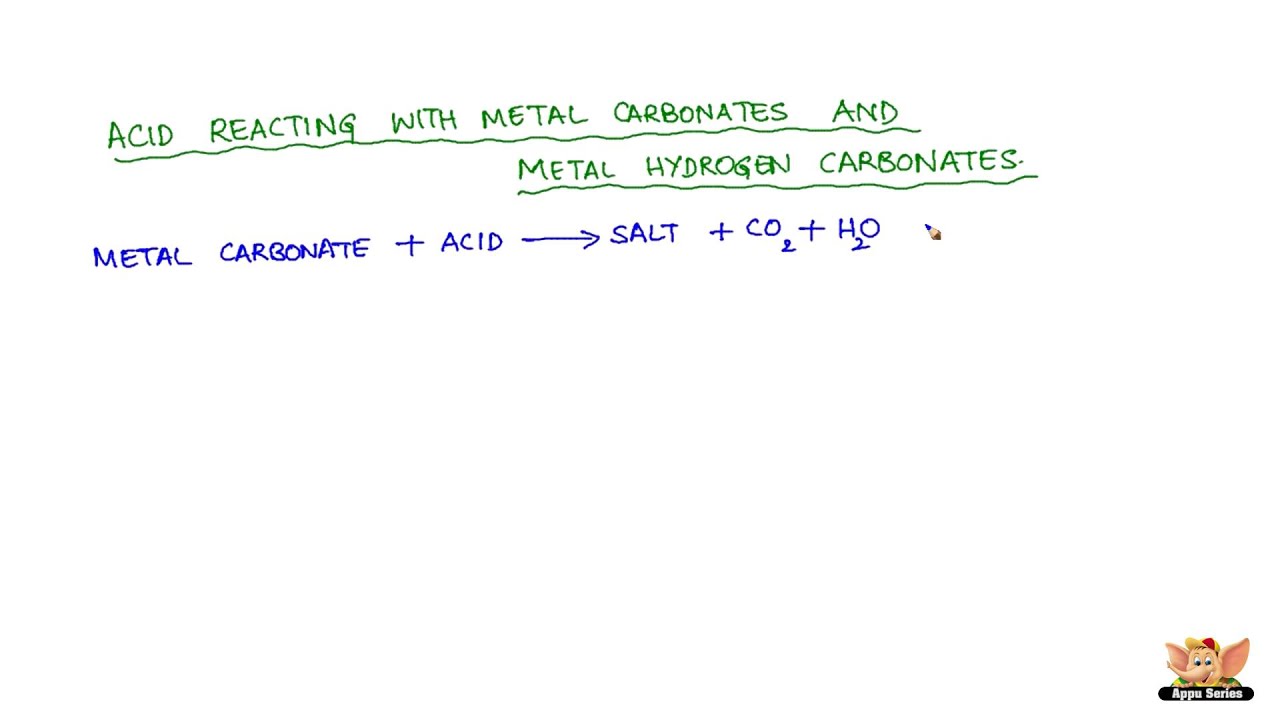 ACID REACTING WITH METAL CARBONATES AND
METAL HYDROGEN CARBONATES.
METAL CARBONATE + ACID ⟶ SALT + CO₂ + H₂O
Appu Series